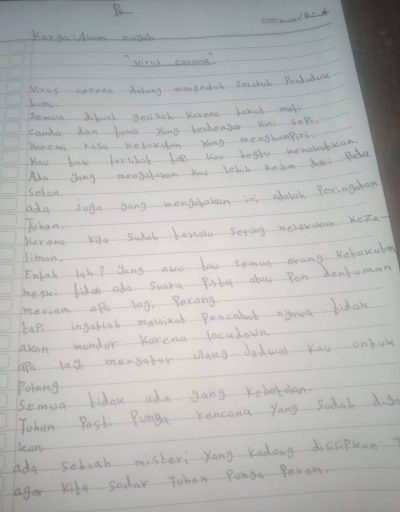 Karya: Alam nugah
"Virus corona"
Virus corona datang mengebuh seluruh Penduduk
bumi.
Semua dibuat gelisah karena takut mati.
canda dan tawa yang terdengar kini sepi.
Karena rasa ketakutan yang menghampiri.
Kau tak terlihat tapi kau begitu menakutkan.
Ada yang mengatakan kau lebih kejam dari pada
setan.
ada Joga yang mengatakan ini adalah Peringatan
Tuhan.
Karena kita sudah terlalu sering melakukan keza-
liman.
Entah lah? yang aku tau semua orang ketakutan
meski tidak ada suara Pistol atau Pon dentuman
meriam apa lagi Perang.
tapi ingatlah malaikat Pencabut nyawa tidak
akan mundur karena lockdown.
apa lagi mengatur ulang Jadwal kau untuk
Pulang.
Semua tidak ada yang kebetulan.
Tuhan Pasti Punya rencana yang sudah
kan.
ada sebuah misteri yang kadang disisipkan
agar kita sadar Tuhan Punya Peran.